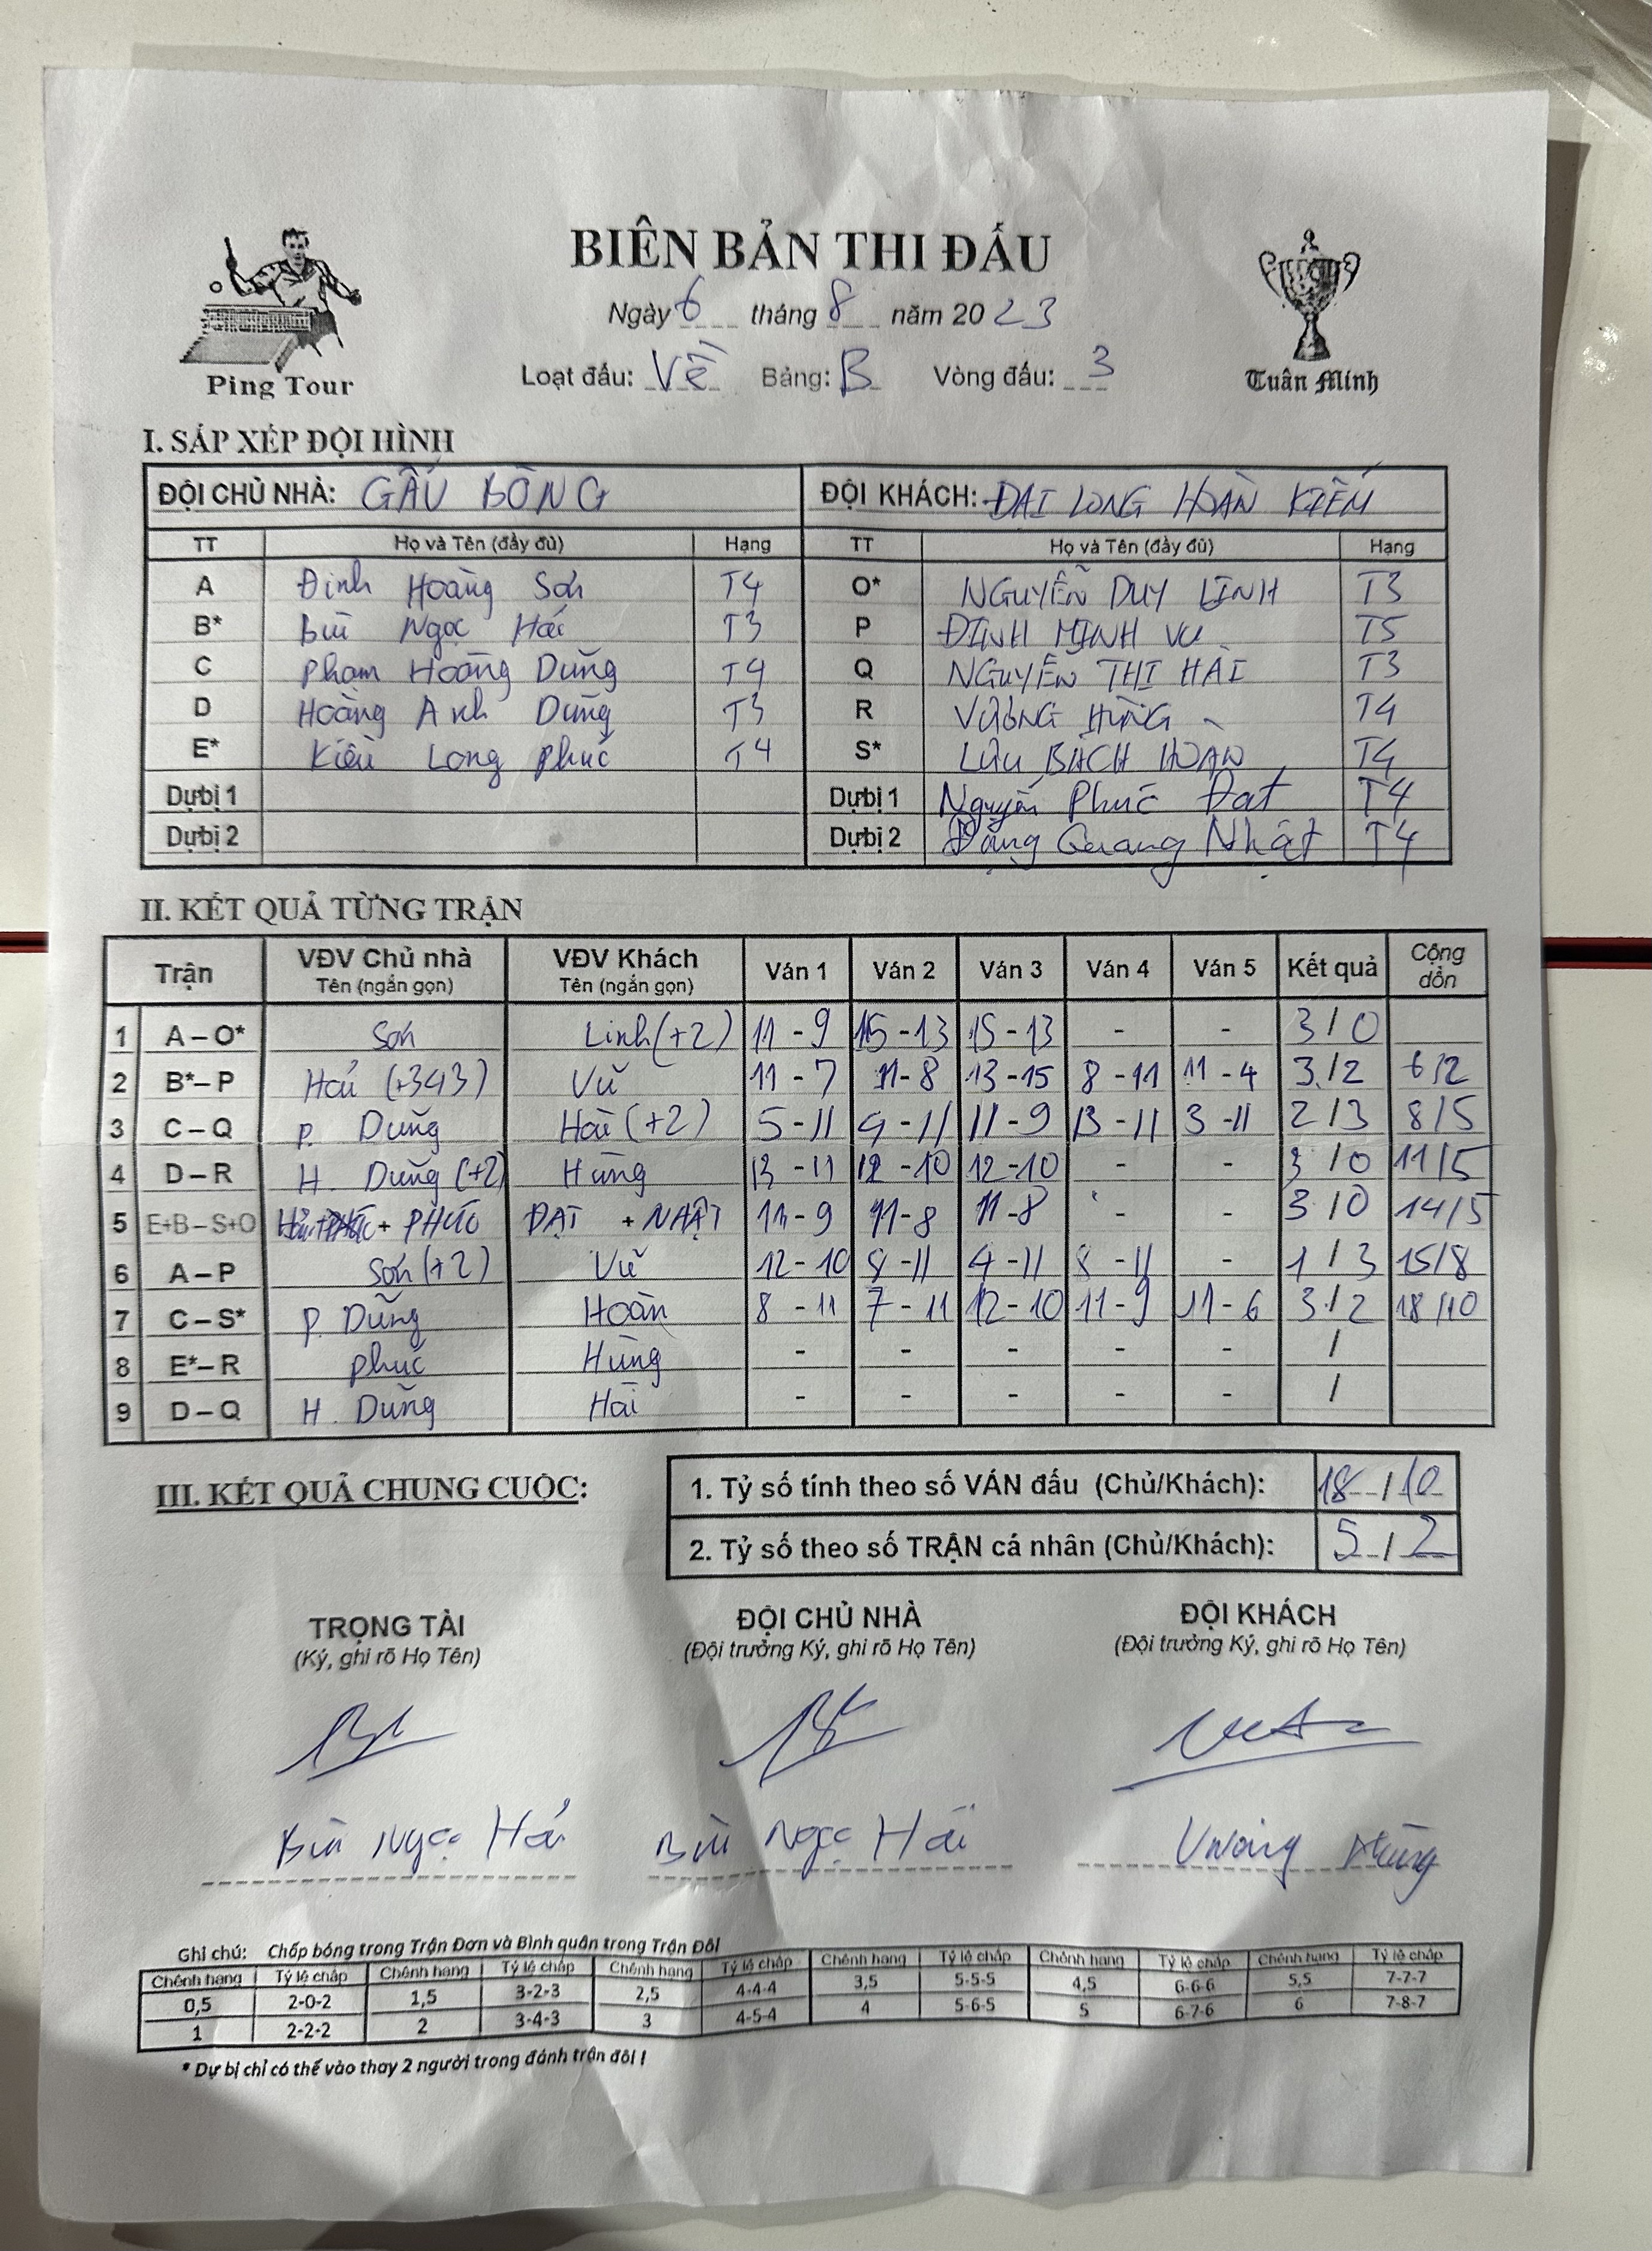 BIÊN BẢN THI ĐẤU
Ngày 6 tháng 8 năm 2023
Ping Tour
Loạt đấu: Về Bảng: B Vòng đấu: 3
Tuấn Minh
I. SẮP XẾP ĐỘI HÌNH
ĐỘI CHỦ NHÀ: GẤU BÔNG ĐỘI KHÁCH: ĐẠI LONG HOÀN KIẾM
TT Họ và Tên (đầy đủ) Hạng TT Họ và Tên (đầy đủ) Hạng
A Đinh Hoàng Sơn T4 O* NGUYỄN DUY LINH T3
B* Bùi Ngọc Hải T3 P ĐINH MINH VŨ T5
C Phạm Hoàng Dũng T4 Q NGUYỄN THỊ HẢI T3
D Hoàng Anh Dũng T3 R VƯƠNG HÙNG T4
E* Kiều Long Phúc T4 S* LƯU BÁCH HOÀN T4
Dự bị 1 Dự bị 1 Nguyễn Phúc Đạt T4
Dự bị 2 Dự bị 2 Đặng Quang Nhật T4
II. KẾT QUẢ TỪNG TRẬN
Trận VĐV Chủ nhà Tên (ngắn gọn) VĐV Khách Tên (ngắn gọn) Ván 1 Ván 2 Ván 3 Ván 4 Ván 5 Kết quả Cộng dồn
1 A – O* Sơn Linh (+2) 11 - 9 15 - 13 15 - 13 - - 3 / 0
2 B* – P Hải (+343) Vũ 11 - 7 11 - 8 13 - 15 8 - 11 11 - 4 3 / 2 6/2
3 C – Q P. Dũng Hải (+2) 5 - 11 9 - 11 11 - 9 13 - 11 3 - 11 2 / 3 8/5
4 D – R H. Dũng (+2) Hùng 13 - 11 12 - 10 12 - 10 - - 3 / 0 11/5
5 E+B – S+O + PHÚC ĐẠT + NHẬT 11 - 9 11 - 8 11 - 8 - 3 / 0 14/5
6 A – P Sơn (+2) Vũ 12 - 10 8 - 11 4 - 11 8 - 11 - 1 / 3 15/8
7 C – S* P. Dũng Hoàn 8 - 11 7 - 11 12 - 10 11 - 9 11 - 6 3 / 2 18/10
8 E* – R Phúc Hùng - - - - - /
9 D – Q H. Dũng Hải - - - - - /
III. KẾT QUẢ CHUNG CUỘC:
1. Tỷ số tính theo số VÁN đấu (Chủ/Khách): 18 / 10
2. Tỷ số theo số TRẬN cá nhân (Chủ/Khách): 5 / 2
TRỌNG TÀI ĐỘI CHỦ NHÀ ĐỘI KHÁCH
(Ký, ghi rõ Họ Tên) (Đội trưởng Ký, ghi rõ Họ Tên) (Đội trưởng Ký, ghi rõ Họ Tên)
Bùi Ngọc Hải Bùi Ngọc Hải Vương Hùng
Ghi chú: Chấp bóng trong Trận Đơn và Bình quân trong Trận Đôi
Chênh hạng Tỷ lệ chấp Chênh hạng Tỷ lệ chấp Chênh hạng Tỷ lệ chấp Chênh hạng Tỷ lệ chấp Chênh hạng Tỷ lệ chấp Chênh hạng Tỷ lệ chấp
0,5 2-0-2 1,5 3-2-3 2,5 4-4-4 3,5 5-5-5 4,5 6-6-6 5,5 7-7-7
1 2-2-2 2 3-4-3 3 4-5-4 4 5-6-5 5 6-7-6 6 7-8-7
* Dự bị chỉ có thể vào thay 2 người trong đánh trận đôi !